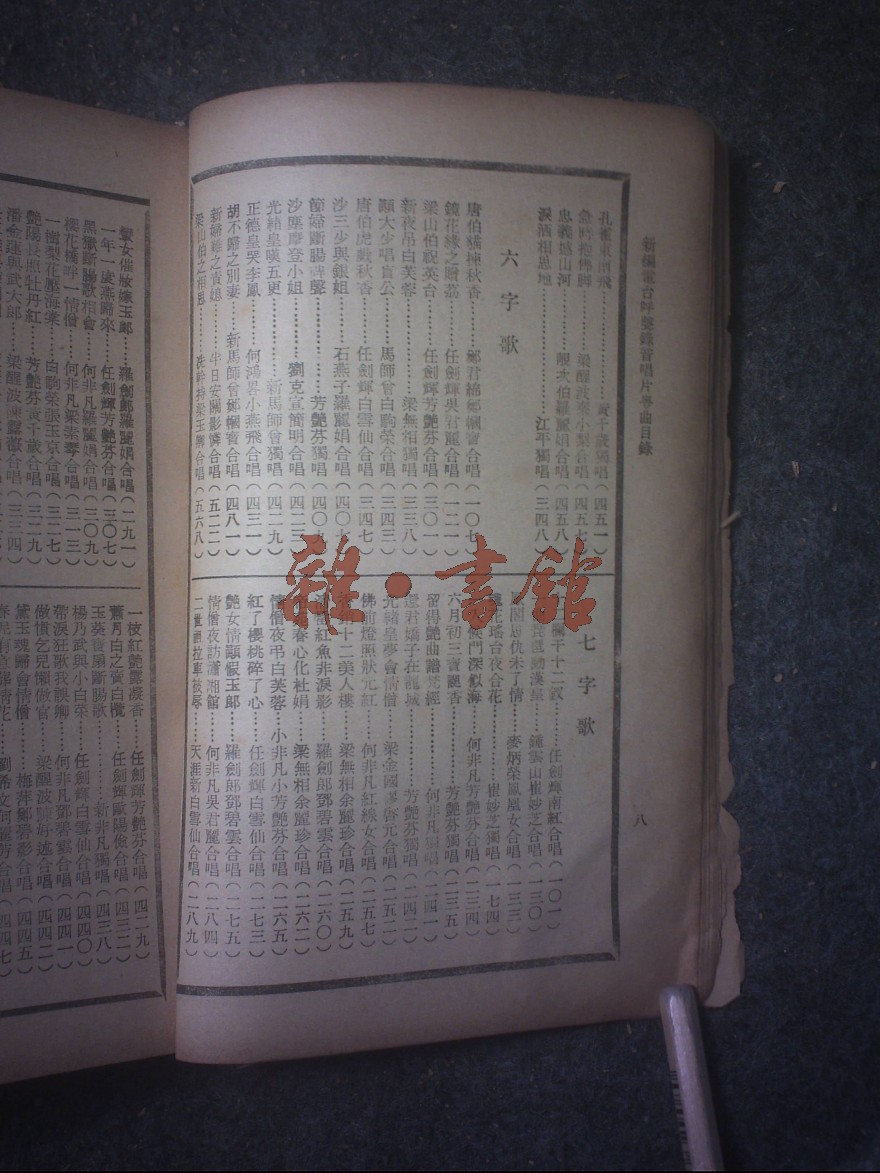 新編電台呌聲錄音唱片粵曲目錄
八
孔雀東南飛⋯⋯黃千歲獨唱(四五一)
急時抱佛脚⋯⋯梁醒波蔡小梨合唱(四五七)
忠義撼山河⋯⋯靚次伯羅麗娟合唱(四五八)
淚洒相思地⋯⋯江年獨唱(三四八)
六字歌
唐伯貓揀秋香⋯⋯鄭君綿鄭幗寶合唱(一〇七)
鏡花緣之贈荔⋯⋯任劍輝吳君麗合唱(一二一)
梁山伯祝英台⋯⋯任劍輝芳艷芬合唱(三〇一)
新夜吊白芙蓉⋯⋯梁無相獨唱(三三八)
顯大少唱盲公⋯⋯馬師曾白駒榮合唱(三四三)
唐伯虎數秋香⋯⋯任劍輝白雲仙合唱(三四七)
沙三少與銀姐⋯⋯石燕子羅麗娟合唱(四〇七)
節婦斷腸碑⋯⋯芳艷芬獨唱(四〇九)
沙塵摩登小姐⋯⋯劉克宣簡明合唱(四二三)
光緒皇嘆五更⋯⋯新馬師曾獨唱(四二九)
正德皇哭李鳳⋯⋯何鴻畧小燕飛合唱(四三一)
胡不歸之別妻⋯⋯新馬師曾鄭幗寶合唱(四八一)
新歸⋯⋯半日安關影憐合唱(五二二)
梁山伯之相思⋯⋯冼幹持梁玉卿合唱(五六八)
七字歌
十二釵⋯⋯任劍輝南紅合唱(一〇一)
動漢皇⋯⋯鍾雲山崔妙芝合唱(一三〇)
閣恩仇未了情⋯⋯麥炳榮鳳凰女合唱(一三三)
花瑤台夜合花⋯⋯崔妙芝獨唱(一七四)
六月初三賣靚香⋯⋯芳艷芬獨唱(二三五)
侯門深似海⋯⋯何非凡芳艷芬合唱(二三四)
留得艷曲譜梵經⋯⋯何非凡獨唱(二四一)
還君嬌子在龍城⋯⋯芳艷芬獨唱(二四二)
光緒皇夢會情僧⋯⋯梁金國合唱(二五二)
佛前燈照狀元紅⋯⋯何非凡紅線女合唱(二五七)
十二美人樓⋯⋯梁無相余麗珍合唱(二五九)
紅魚非淚影⋯⋯羅劍郎鄧碧雲合唱(二六〇)
春心化杜娟⋯⋯梁無相余麗珍合唱(二六二)
情僧夜弔白芙蓉⋯⋯小非凡小芳艷芬合唱(二六五)
紅了櫻桃碎了心⋯⋯任劍輝白雲仙合唱(二七三)
艷女情顛假玉郎⋯⋯羅劍郎鄧碧雲合唱(二七五)
情僧夜訪瀟湘館⋯⋯何非凡吳君麗合唱(二八四)
二世祖拉車被辱⋯⋯天涯新白雲仙合唱(二八九)
蠻女催妝嫁玉郎⋯⋯羅劍郎羅麗娟合唱(二九一)
一年一度燕歸來⋯⋯任劍輝芳艷芬合唱(三〇七)
黑獄斷腸歌相會⋯⋯何非凡羅麗娟合唱(三〇九)
櫻花橋畔一情僧⋯⋯何非凡梁素琴合唱(三一三)
一樹梨花壓海棠⋯⋯白駒榮張玉京合唱(三二九)
艷陽長照牡丹紅⋯⋯芳艷芬黃千歲合唱(三三三)
潘金蓮與武大郎⋯⋯梁醒波陳露薇合唱(三三四)
一枝紅艷露凝香⋯⋯任劍輝芳艷芬合唱(四二九)
蕭月白之賣白欖⋯⋯任劍輝歐陽儉合唱(四三二)
玉葵寶扇斷腸歌⋯⋯新非凡獨唱(四三八)
楊乃武與小白菜⋯⋯任劍輝白雲仙合唱(四四〇)
帶淚狂歌我誤卿⋯⋯何非凡鄧碧雲合唱(四四一)
做慣乞兒懶做官⋯⋯梁醒波陳好逑合唱(四四四)
黛玉魂歸會情僧⋯⋯梅菁鄭碧影合唱(四四五)
劉希文何麗芳合唱(四四七)
雜·書館